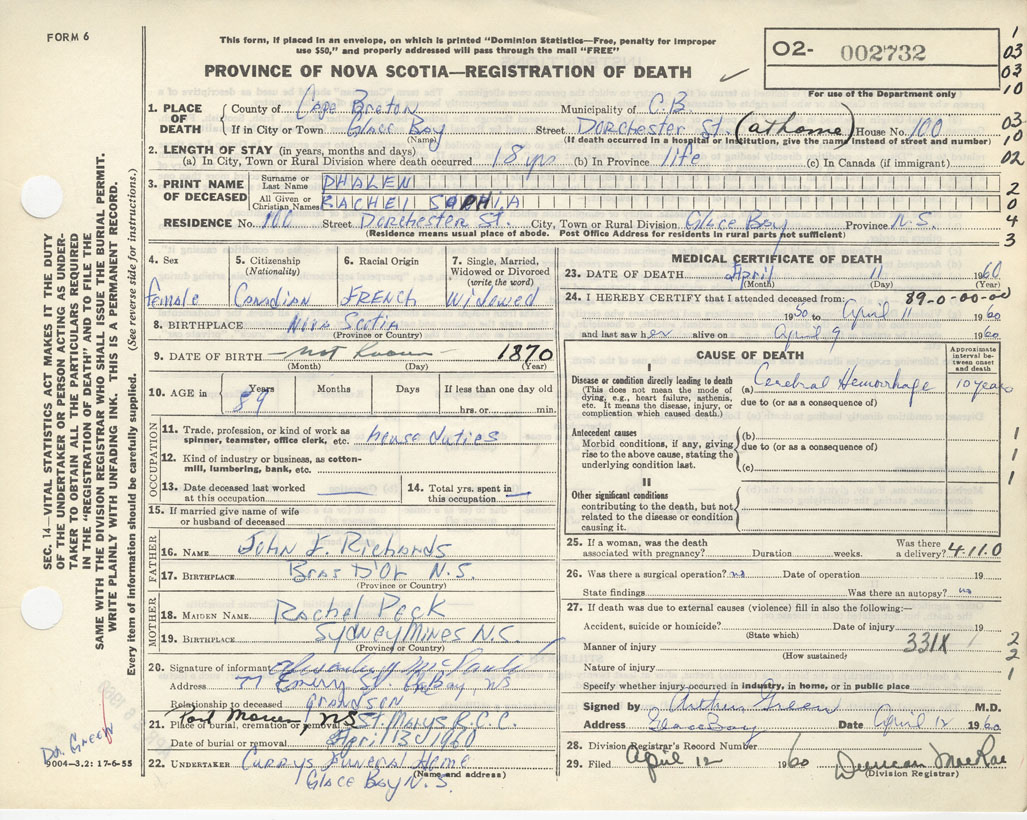 FORM 6
This form, if placed in an envelope, on which is printed "Dominion Statistics—Free, penalty for improper
use $50," and properly addressed will pass through the mail "FREE"
PROVINCE OF NOVA SCOTIA—REGISTRATION OF DEATH
02- 002732
For use of the Department only
1
03
03
10
03
10
02
2
0
4
3
1. PLACE OF DEATH
County of Cape Breton Municipality of C.B.
If in City or Town Glace Bay Street Dorchester St. (at home) House No. 100
(Name) (If death occurred in a hospital or institution, give the name instead of street and number)
2. LENGTH OF STAY (in years, months and days)
(a) In City, Town or Rural Division where death occurred 18 yrs (b) In Province life (c) In Canada (if immigrant)
3. PRINT NAME OF DECEASED
Surname or Last Name PHALEN
All Given or Christian Names RACHEL SOPHIA
RESIDENCE No. 100 Street Dorchester St. City, Town or Rural Division Glace Bay Province N.S.
(Residence means usual place of abode. Post Office Address for residents in rural parts not sufficient)
4. Sex Female
5. Citizenship (Nationality) Canadian
6. Racial Origin FRENCH
7. Single, Married, Widowed or Divorced (write the word) Widowed
8. BIRTHPLACE Nova Scotia
(Province or Country)
9. DATE OF BIRTH — not Known — 1870
(Month) (Day) (Year)
10. AGE in Years 89 Months Days If less than one day old
hrs. or min.
OCCUPATION
11. Trade, profession, or kind of work as spinner, teamster, office clerk, etc. house duties
12. Kind of industry or business, as cotton-mill, lumbering, bank, etc.
13. Date deceased last worked at this occupation
14. Total yrs. spent in this occupation
15. If married give name of wife or husband of deceased
FATHER
16. NAME John J. Richards
17. BIRTHPLACE Bras D'Or N.S.
(Province or Country)
MOTHER
18. MAIDEN NAME Rachel Peck
19. BIRTHPLACE Sydney Mines N.S.
(Province or Country)
20. Signature of informant
Address 77 Emery St. Gl. Bay, NS
Relationship to deceased grandson
21. Place of burial, cremation or removal Port Morien, NS St. Marys R.C.C.
Date of burial or removal April 13 1960
22. UNDERTAKER Currys Funeral Home
(Name and address)
Glace Bay N.S.
MEDICAL CERTIFICATE OF DEATH
23. DATE OF DEATH April 11 1960
(Month) (Day) (Year)
24. I HEREBY CERTIFY that I attended deceased from: 89-0-00-00
1950 to April 11 1960
and last saw her alive on April 9 1960
CAUSE OF DEATH
Approximate interval between onset and death
I
Disease or condition directly leading to death
(This does not mean the mode of dying, e.g., heart failure, asthenia, etc. It means the disease, injury, or complication which caused death.)
(a) Cerebral Hemorrhage 10 years
due to (or as a consequence of)
Antecedent causes
Morbid conditions, if any, giving rise to the above cause, stating the underlying condition last.
(b)
due to (or as a consequence of)
(c)
1
1
1
II
Other significant conditions contributing to the death, but not related to the disease or condition causing it.
25. If a woman, was the death associated with pregnancy? Duration weeks. Was there a delivery? 4.11.0
26. Was there a surgical operation? no Date of operation 19
State findings Was there an autopsy? no
27. If death was due to external causes (violence) fill in also the following:—
Accident, suicide or homicide? Date of injury 19
(State which)
Manner of injury 331X
(How sustained)
Nature of injury
2
2
1
Specify whether injury occurred in industry, in home, or in public place
Signed by Arthur Green M.D.
Address Glace Bay Date April 12 1960
28. Division Registrar's Record Number
29. Filed April 12 1960 Duncan MacRae
(Division Registrar)
SEC. 14—VITAL STATISTICS ACT MAKES IT THE DUTY
OF THE UNDERTAKER OR PERSON ACTING AS UNDER-
TAKER TO OBTAIN ALL THE PARTICULARS REQUIRED
IN THE "REGISTRATION OF DEATH" AND TO FILE THE
SAME WITH THE DIVISION REGISTRAR WHO SHALL ISSUE THE BURIAL PERMIT.
WRITE PLAINLY WITH UNFADING INK. THIS IS A PERMANENT RECORD.
Every item of information should be carefully supplied. (See reverse side for instructions.)
Dr. Green
9004—3.2: 17-6-55